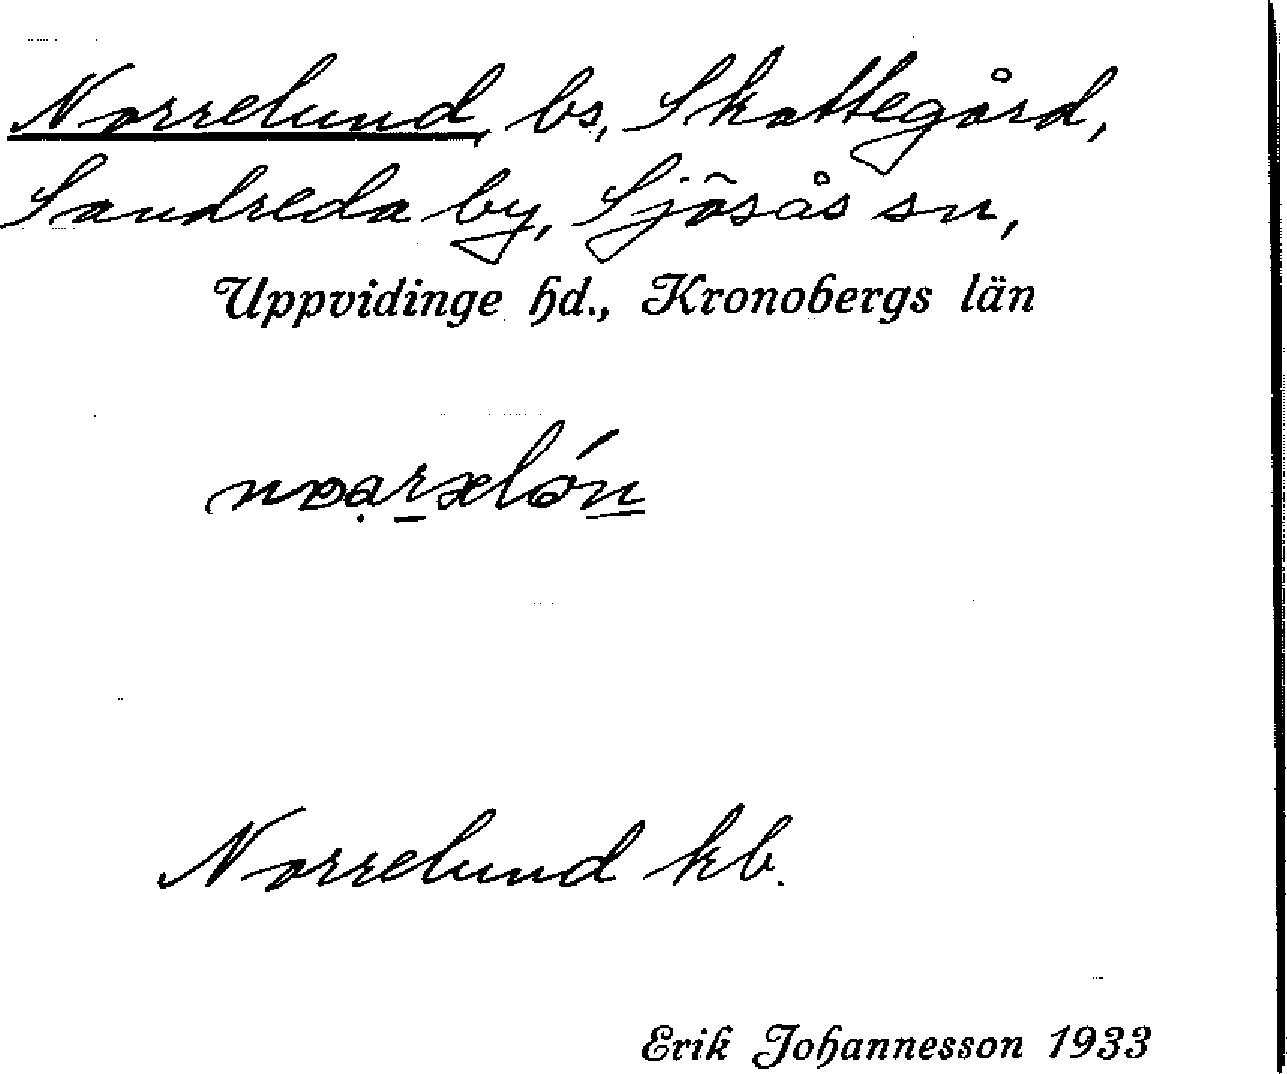 Norrelund, bs, Skattegård,
Sandreda by, Sjösås sn,
Uppvidinge hd., Kronobergs län
Norrelund kb.
Erik Johannesson 1933